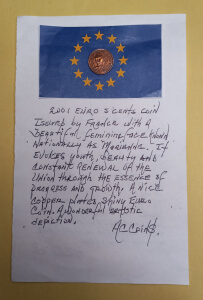 2001 EURO 5 cents coin
Issued by France with a
beautiful feminine face known
Nationally as Marianne. It
Evokes youth, beauty and
constant renewal of the
Union through the essence of
progress and growth. A nice
copper plated, shiny Euro
Coin. A wonderful artistic
depiction.
AC Coins